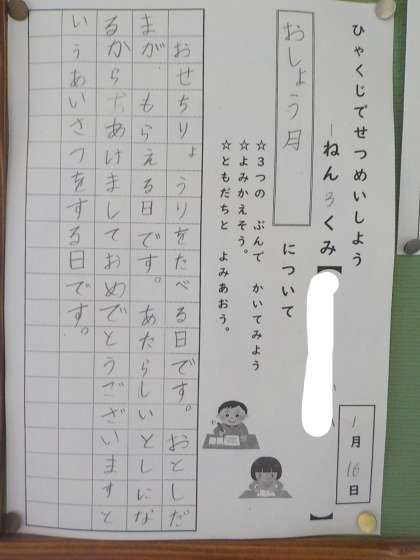 ひゃくじでせつめいしよう
一ねん3くみ【
】
1月16日
おしょう月
について
☆3つの ぶんで かいてみよう
☆よみかえそう。
☆ともだちと よみあおう。
おせちりょうりをたべる日です。おとしだ
まが もらえる日です。あたらしいとしにな
るからあけましておめでとうございますと
いうあいさつをする日です。